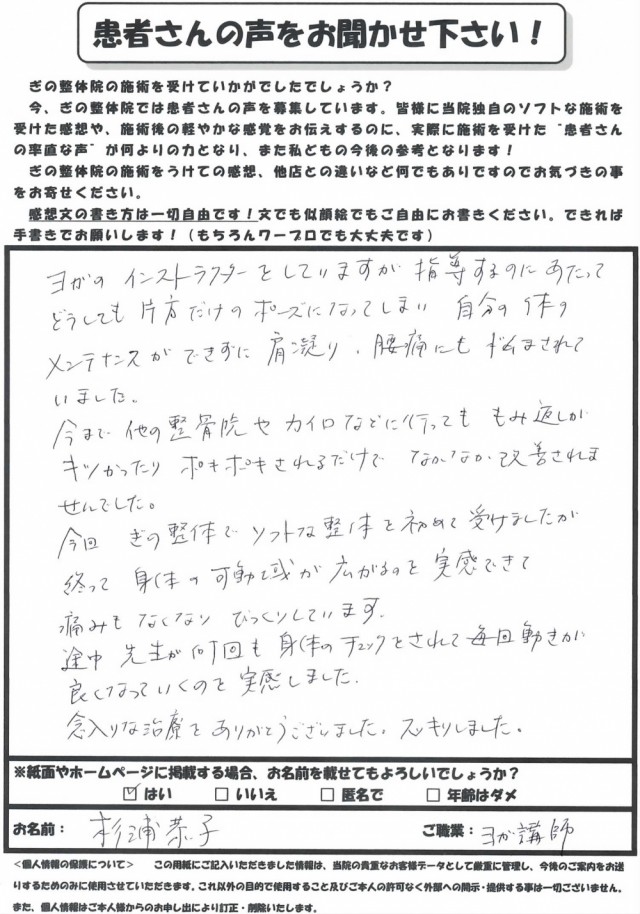 患者さんの声をお聞かせ下さい！
ぎの整体院の施術を受けていかがでしたでしょうか？
今、ぎの整体院では患者さんの声を募集しています。皆様に当院独自のソフトな施術を
受けた感想や、施術後の軽やかな感覚をお伝えするのに、実際に施術を受けた“患者さん
の率直な声”が何よりの力となり、また私どもの今後の参考となります！
ぎの整体院の施術をうけての感想、他店との違いなど何でもありですのでお気づきの事
をお寄せください。
感想文の書き方は一切自由です！文でも似顔絵でもご自由にお書きください。できれば
手書きでお願いします！（もちろんワープロでも大丈夫です）
ヨガの インストラクターをしていますが 指導するのにあたって
どうしても 片方だけの ポーズになってしまい 自分の体の
メンテナンスが できずに 肩凝り、腰痛にも 悩まされて
いました。
今まで 他の整骨院や カイロなどに行っても もみ返しが
キツかったり ポキポキされるだけで なかなか改善されま
せんでした。
今回 ぎの整体で ソフトな整体を初めて受けましたが
終って 身体の可動域が広がるのを実感できて
痛みもなくなり びっくりしています。
途中 先生が何回も身体のチェックをされて毎回動きが
良くなっていくのを実感しました。
念入りな治療をありがとうございました。スッキリしました。
※紙面やホームページに掲載する場合、お名前を載せてもよろしいでしょうか？
☑ はい □ いいえ □ 匿名で □ 年齢はダメ
お名前： 杉浦恭子 ご職業： ヨガ講師
＜個人情報の保護について＞ この用紙にご記入いただきました情報は、当院の貴重なお客様データとして厳重に管理し、今後のご案内をお送
りするためのみに使用させていただきます。これ以外の目的で使用すること及びご本人の許可なく外部への開示・提供する事は一切ございません。
また、個人情報はご本人様からのお申し出により訂正・削除いたします。